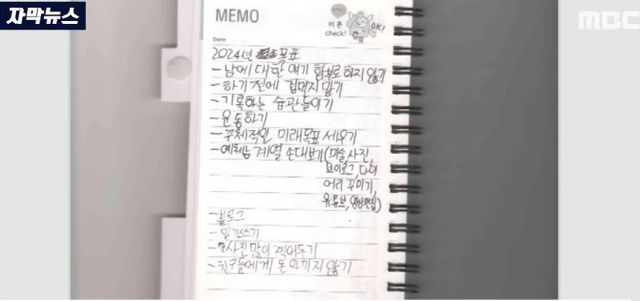 자막뉴스
MBC
MEMO
check!
OK!
Date
2024년 목표
- 남에 대한 얘기 함부로 하지 않기
- 하기 전에 겁먹지 말기
- 기록하는 습관들이기
- 운동하기
- 구체적인 미래목표 세우기
- 예체능 계열 손대보기(미술,사진,
브이로그,다이
어리 꾸미기,
유튜브,영상편집)
- 블로그
- 일기쓰기
- 사진 많이 찍어두기
- 친구들에게 돈 아끼지 않기